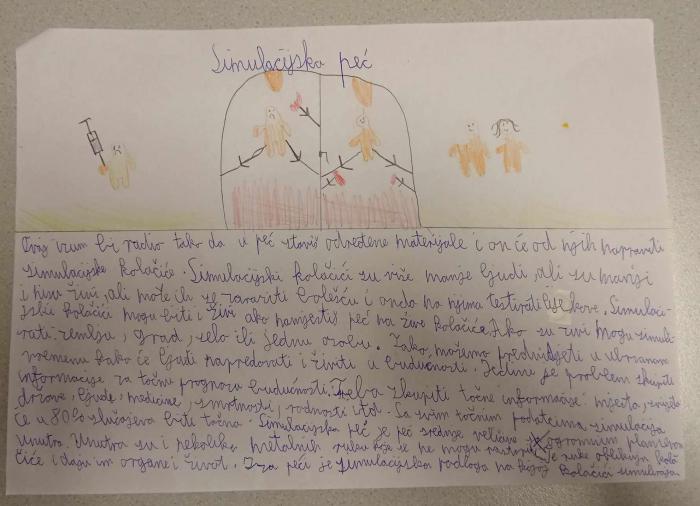 Simulacijska peć
Ovaj izum bi radio tako da u peć staviš određene materijale i on će od njih napraviti
simulacijske kolačiće. Simulacijski kolačići su više manje ljudi, ali su manji
i nisu živi, ali može ih se zaraziti bolešću i onda na njima testirati lijekove. Simulaci-
jski kolačići mogu biti i živi ako namjestiš peć na žive kolačiće. Ako su živi mogu simuli-
rati zemlju, grad, selo ili jednu osobu. Tako, možemo predvidjeti u ubrzanom
vremenu kako će ljudi napredovati i živiti u budućnosti. Jedini je problem skupiti
informacije za točnu prognozu budućnosti. Treba skupiti točne informacije: mjesta,
države, ljude, medicine, smrtnosti, rodnosti itd. Sa svim točnim podatcima simulacija
će u 80% slučajeva biti točna. Simulacijska peć je peć srednje veličine s ogromnim plamenom
unutra. Unutra su i nekoliko metalnih ruku koje se ne mogu rastopiti. Te ruke oblikuju kola-
čiće i daju im organe i život. Iza peći je simulacijska podloga na kojoj kolačići simuliraju.